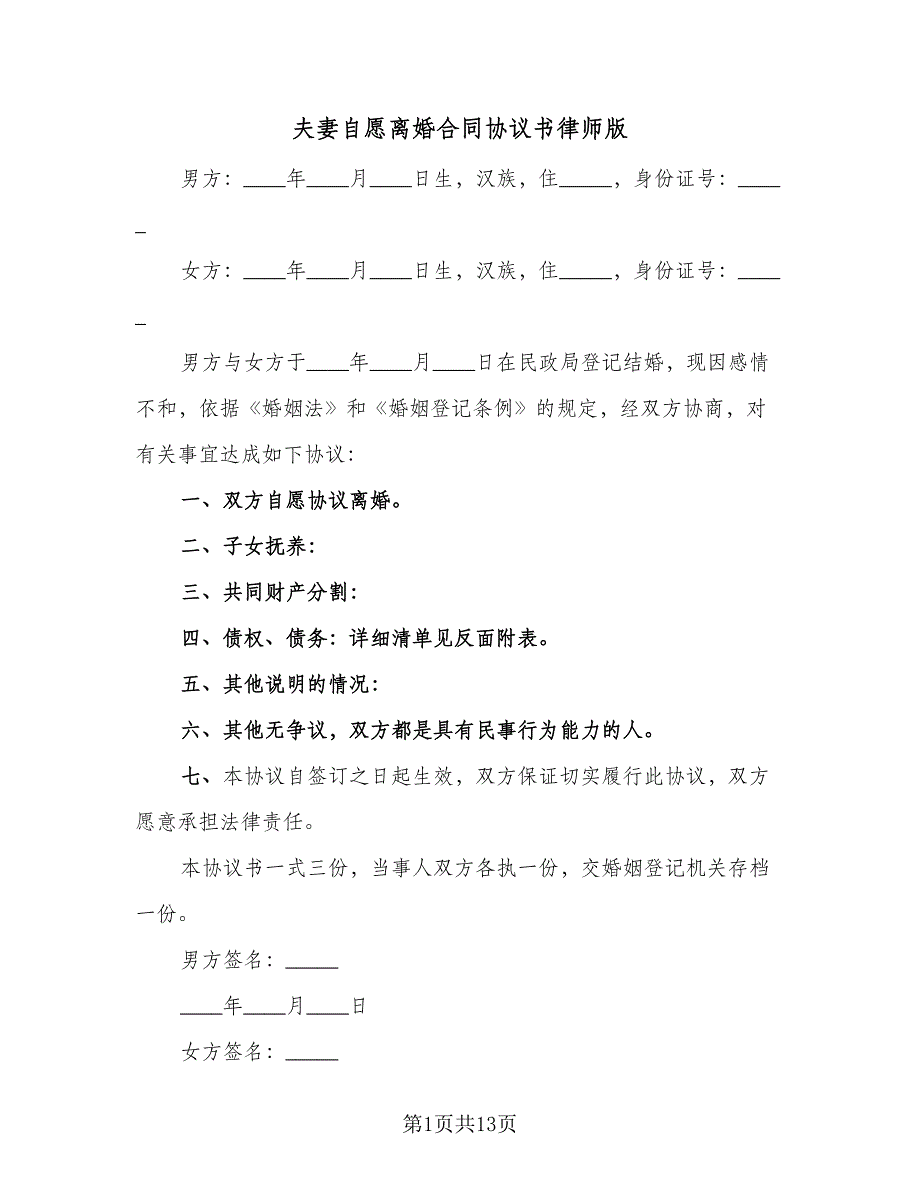 夫妻自愿离婚合同协议书律师版
男方：____年____月____日生，汉族，住_____，身份证号：____
_
女方：____年____月____日生，汉族，住_____，身份证号：____
_
男方与女方于____年____月____日在民政局登记结婚，现因感情
不和，依据《婚姻法》和《婚姻登记条例》的规定，经双方协商，对
有关事宜达成如下协议：
一、双方自愿协议离婚。
二、子女抚养：
三、共同财产分割：
四、债权、债务：详细清单见反面附表。
五、其他说明的情况：
六、其他无争议，双方都是具有民事行为能力的人。
七、本协议自签订之日起生效，双方保证切实履行此协议，双方
愿意承担法律责任。
本协议书一式三份，当事人双方各执一份，交婚姻登记机关存档
一份。
男方签名：_____
____年____月____日
女方签名：_____
第1页共13页